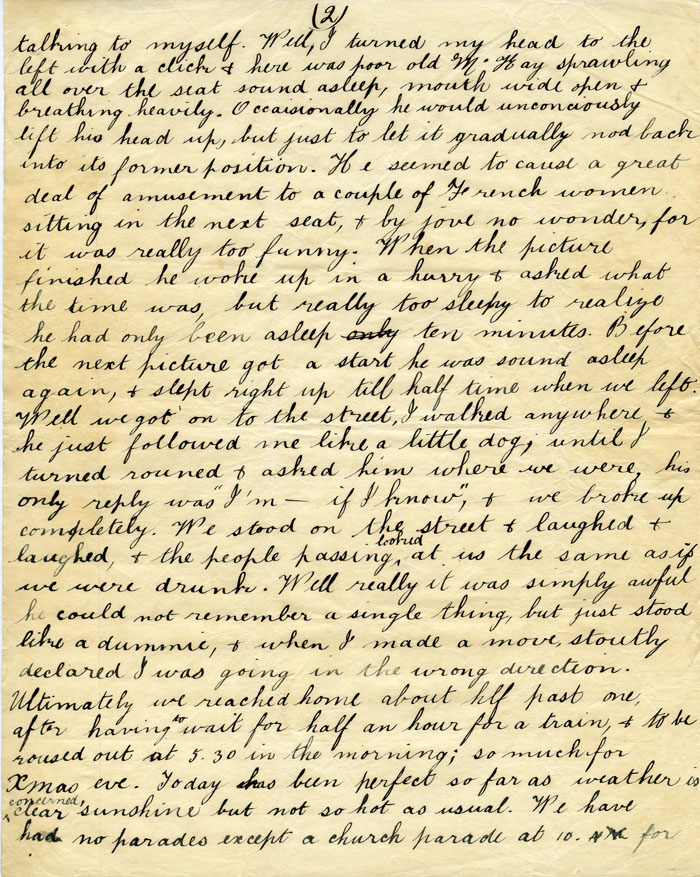 (2)
talking to myself. Well, I turned my head to the
left with a click & here was poor old Mc Hay sprawling
all over the seat sound asleep, mouth wide open &
breathing heavily. Occaisionally he would unconciously
lift his head up, but just to let it gradually nod back
into its former position. He seemed to cause a great
deal of amusement to a couple of French women
sitting in the next seat, & by jove no wonder, for
it was really too funny. When the picture
finished he woke up in a hurry & asked what
the time was, but really too sleepy to realize
he had only been asleep only ten minutes. Before
the next picture got a start he was sound asleep
again, & slept right up till half time when we left.
Well we got on to the street, I walked anywhere &
he just followed me like a little dog; until I
turned rouned & asked him where we were, his
only reply was "I'm — if I know", & we broke up
completely. We stood on the street & laughed &
laughed, & the people passing looked at us the same as if
we were drunk. Well really it was simply awful
he could not remember a single thing, but just stood
like a dummie, & when I made a move, stoutly
declared I was going in the wrong direction.
Ultimately we reached home about hlf past one,
after having to wait for half an hour for a train, & to be
roused out at 5.30 in the morning; so much for
Xmas eve. Today has been perfect so far as weather is
concerned clear sunshine but not so hot as usual. We have
had no parades except a church parade at 10. for